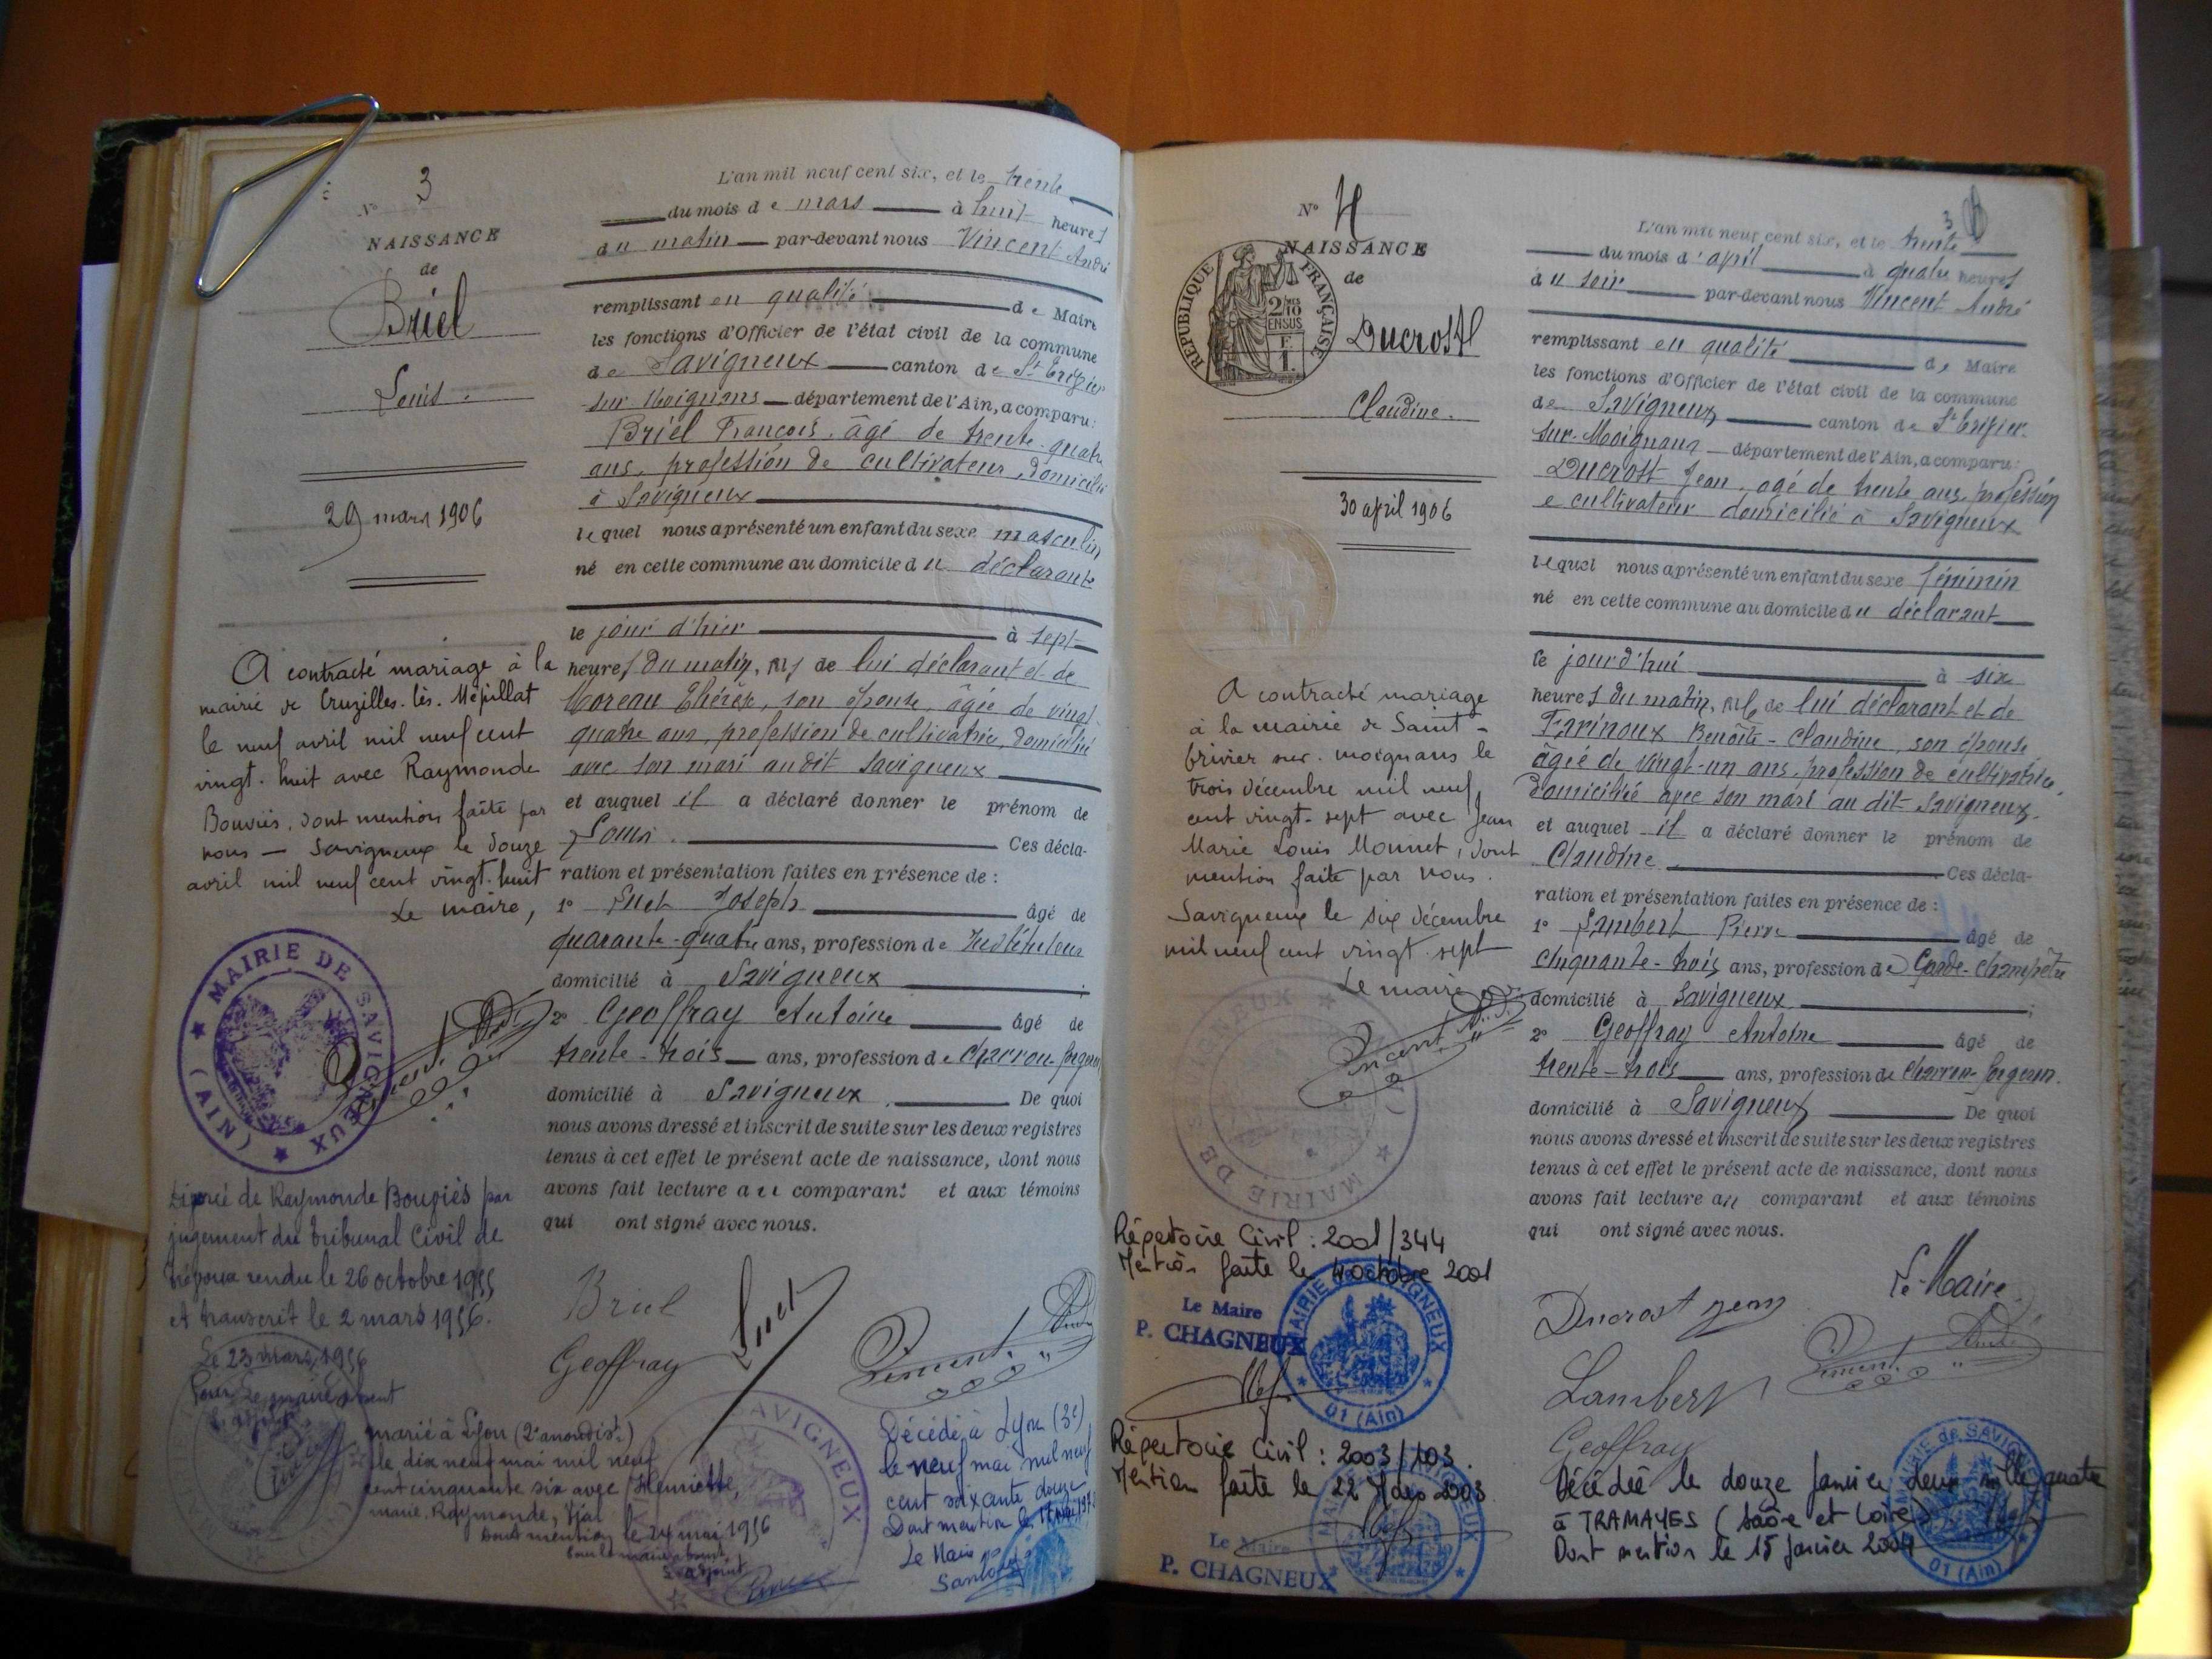 N° 3
NAISSANCE
de
Briel
Louis.
29 mars 1906
A contracté mariage à la
mairie de Cruzilles-lès-Mépillat
le neuf avril mil neuf cent
vingt-huit avec Raymonde
dont mention faite par
nous — Savigneux le douze
avril mil neuf cent vingt-huit
Le maire,
MAIRIE DE SAVIGNEUX
(AIN)
Divorcé de Raymonde par
jugement du tribunal Civil de
Trévoux rendu le 26 octobre 1955
et transcrit le 2 mars 1956.
Le 23 mars 1956
Pour le maire absent
L'adjoint
marié à Lyon (2e arrondist.)
le dix neuf mai mil neuf
cent cinquante six avec Henriette,
marie, Raymonde,
Dont mention le 24 mai 1956
Pour le maire absent
L'adjoint
L'an mil neuf cent six, et le trente
du mois de mars à huit heures
du matin par-devant nous Vincent André
remplissant en qualité de Maire
les fonctions d'Officier de l'état civil de la commune
de Savigneux canton de St Trivier
sur Moignans département de l'Ain, a comparu:
Briel François, âgé de trente-quatre
ans, profession de cultivateur, domicilié
à Savigneux
lequel nous a présenté un enfant du sexe masculin
né en cette commune au domicile du déclarant
le jour d'hier à sept
heures du matin, fils de lui déclarant et de
Moreau Thérèse, son épouse, âgée de vingt-
quatre ans, profession de cultivatrice, domiciliée
avec son mari audit Savigneux
et auquel il a déclaré donner le prénom de
Louis. Ces décla-
ration et présentation faites en présence de :
1° Joseph âgé de
quarante-quatre ans, profession de Instituteur
domicilié à Savigneux ;
2° Geoffray Antoine âgé de
trente-trois ans, profession de Charron-forgeron
domicilié à Savigneux. De quoi
nous avons dressé et inscrit de suite sur les deux registres
tenus à cet effet le présent acte de naissance, dont nous
avons fait lecture au comparant et aux témoins
qui ont signé avec nous.
Briel
Geoffray
Vincent André
SAVIGNEUX
Décédé à Lyon (3e)
le neuf mai mil neuf
cent soixante douze
Dont mention le
Le Maire
N° 4
NAISSANCE
de
REPUBLIQUE FRANÇAISE
2/10
EN SUS
F.
1.
Ducrost
Claudine.
30 april 1906
A contracté mariage
à la mairie de Saint-
Trivier sur-moignans le
trois décembre mil neuf
cent vingt-sept avec Jean
Marie Louis Monnet, dont
mention faite par nous.
Savigneux le six décembre
mil neuf cent vingt-sept
Le maire
Vincent
MAIRIE DE SAVIGNEUX
Répertoire Civil : 2001/344
Mention faite le 4 octobre 2001
Le Maire
P. CHAGNEUX
MAIRIE de SAVIGNEUX
01 (Ain)
Répertoire Civil : 2003/103.
Mention faite le 22 2003
Le Maire
P. CHAGNEUX
3
L'an mil neuf cent six, et le trente
du mois d'april à quatre heures
du soir par-devant nous Vincent André
remplissant en qualité de Maire
les fonctions d'Officier de l'état civil de la commune
de Savigneux canton de St Trivier-
sur-Moignans département de l'Ain, a comparu:
Ducrost Jean, agé de trente ans, profession
e cultivateur domicilié à Savigneux
lequel nous a présenté un enfant du sexe féminin
né en cette commune au domicile du déclarant
le jourd'hui à six
heures du matin, fille de lui déclarant et de
Farinoux Benoîte-Claudine, son épouse
âgée de vingt-un ans, profession de cultivatrice,
domiciliée avec son mari au dit Savigneux.
et auquel il a déclaré donner le prénom de
Claudine Ces décla-
ration et présentation faites en présence de :
1° Lambert Pierre âgé de
cinquante-trois ans, profession de Garde-Champêtre
domicilié à Savigneux ;
2° Geoffray Antoine âgé de
trente-trois ans, profession de Charron-forgeron.
domicilié à Savigneux De quoi
nous avons dressé et inscrit de suite sur les deux registres
tenus à cet effet le présent acte de naissance, dont nous
avons fait lecture au comparant et aux témoins
qui ont signé avec nous.
Le Maire
Ducrost Jean
Vincent André
Lambert
Geoffray
Décédée le douze janvier deux mille quatre
à TRAMAYES (Saône et Loire)
Dont mention le 15 janvier 2004
MAIRIE de SAVIGNEUX
01 (Ain)